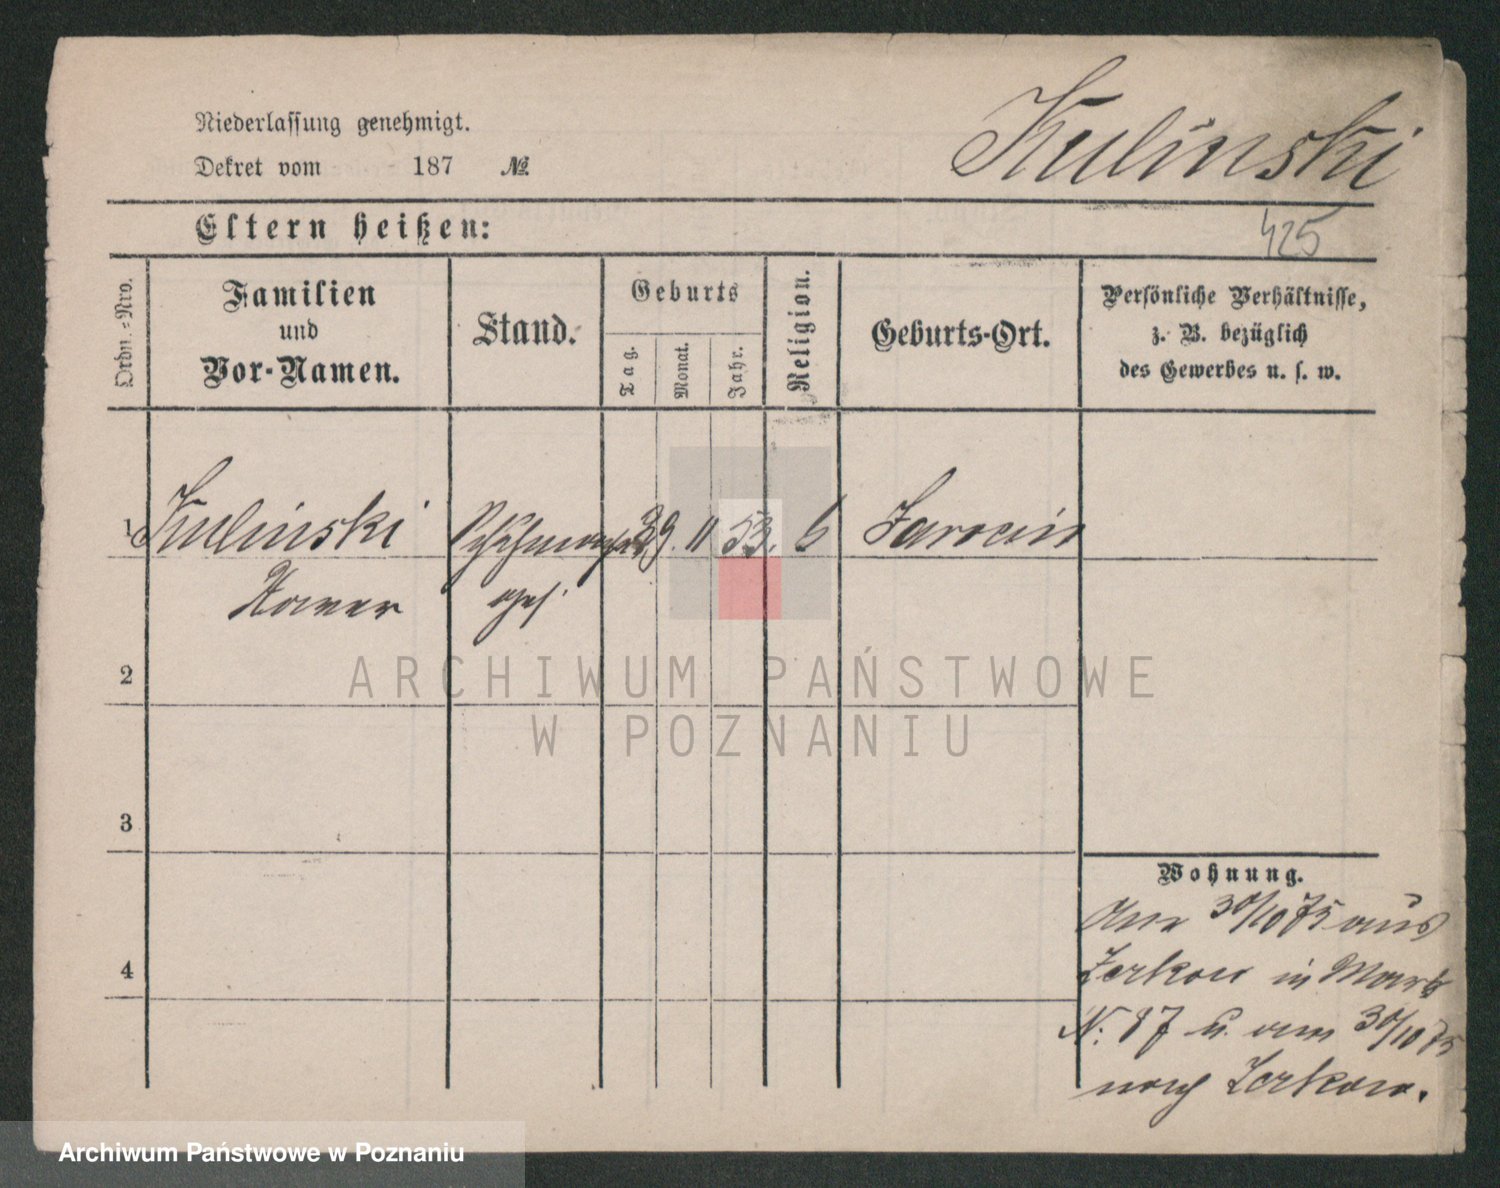 Kulinski
Niederlassung genehmigt.
Dekret vom 187 №
Eltern heißen:
425
Ordn.=Nro.
Familien
und
Vor-Namen.
Stand.
Geburts
Tag.
Monat.
Jahr.
Religion.
Geburts-Ort.
Persönliche Verhältnisse,
z. B. bezüglich
des Gewerbes u. s. w.
1
Kulinski 29. 11 53. Jarocin
Xaver
2
ARCHIWUM PAŃSTWOWE
W POZNANIU
3
Wohnung.
Am 30/10 75 aus
Zerkow in Markt
N: 87 u. am 30/10 75
nach Zerkow.
4
Archiwum Państwowe w Poznaniu